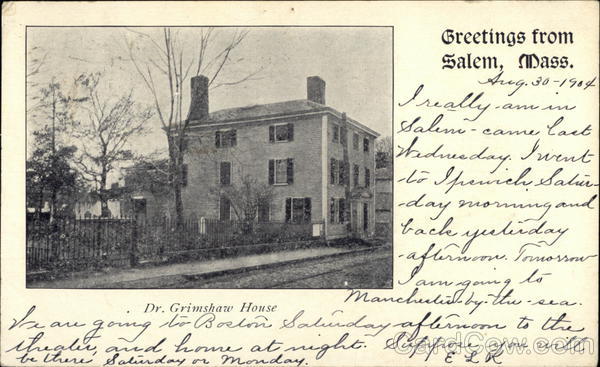 Greetings from
Salem, Mass.
Aug. 30-1904
I really am in
Salem - came last
Wednesday. I went
to Ipswich, Satur-
day morning and
back yesterday
afternoon. Tomorrow
I am going to
Manchester-by-the-sea.
Dr. Grimshaw House
We are going to Boston Saturday afternoon to the
theater, and home at night. Suppose you will
be there Saturday or Monday.
E L R
CardCow.com